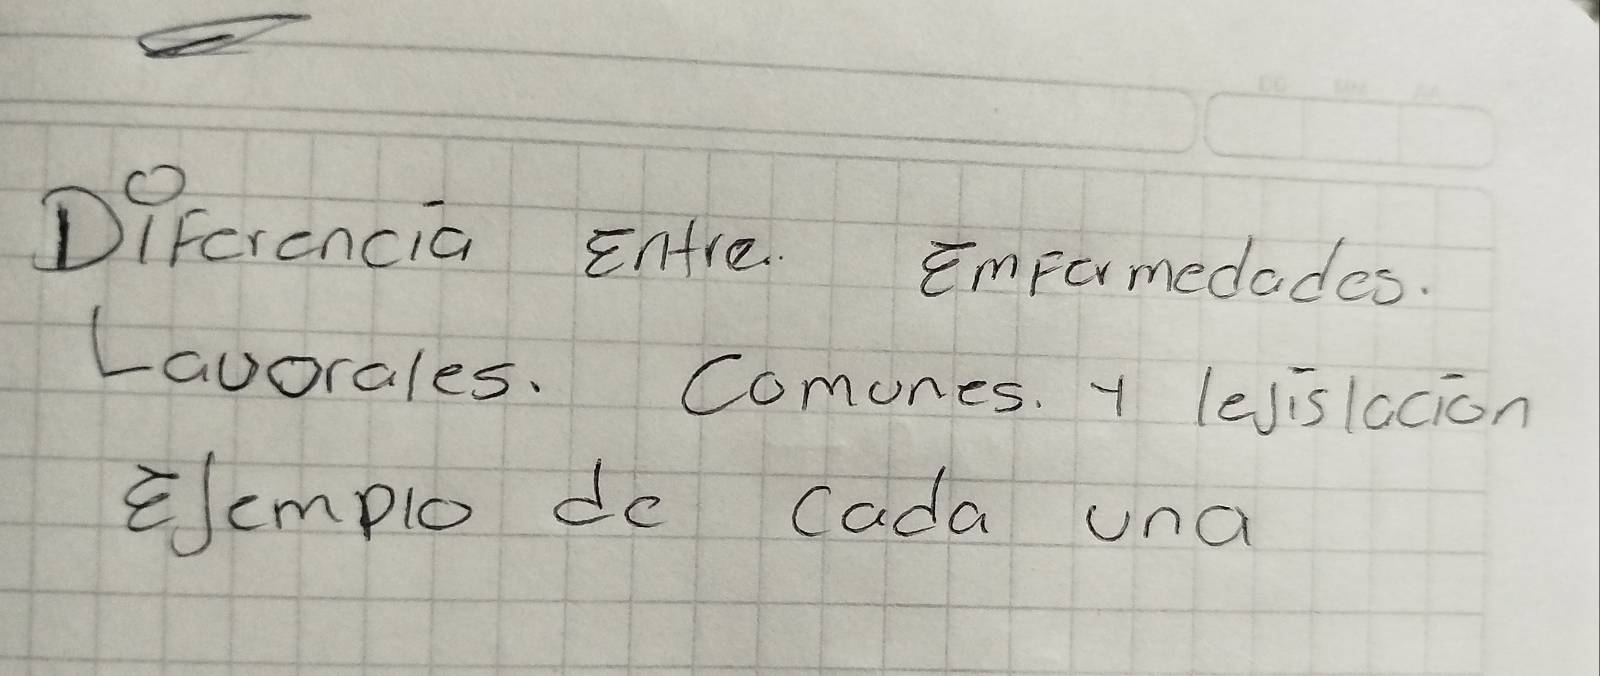 Diferencia Entre. Emfermedades.
Lavorales. Comunes. y lejislación
Ejemplo de cada una